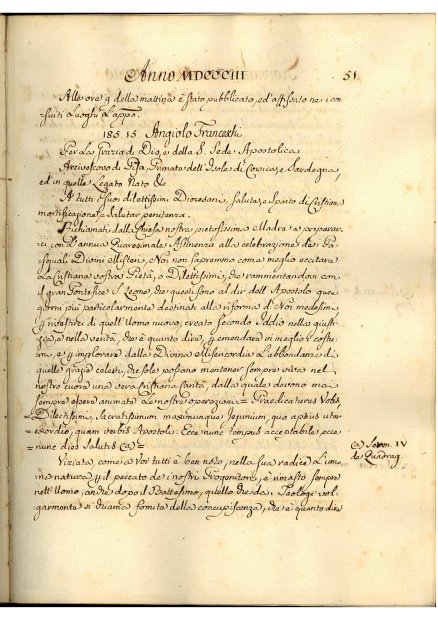 Anno MDCCCIII 51
Alle ore 9 della mattina è stato pubblicato, ed affissato ne i con-
sueti Luoghi L'appo:
185.15 Angiolo Franceschi
Per La Grazia di Dio, e della S. Sede Apostolica
Arcivescovo di Pisa, Primate dell'Isole di Corsica, e Sardegna,
ed in quelle Legato Nato &c
A tutti i suoi dilettissimi Diocesani, salute, e Spirito di Cristiana
mortificazione, e salutar penitenza.
Richiamati dalla Chiesa nostra pietosissima Madre a preparar-
ci con L'annua Quaresimale Astinenza alla celebrazione de i Pa-
squali Divini Misteri, Noi non sapremmo come meglio eccitare
La Cristiana vostra Pietà, o Dilettissimi, che rammentandovi con
il gran Pontefice S. Leone, che questi sono al dir dell'Apostolo que'
giorni più particolarmente destinati alla riforma di Noi medesimi,
p rivestirci di quell'Uomo nuovo, creato secondo Iddio nella giusti-
zia, e nella verità, che è quanto dire, p emendare vi meglio i costu-
mi, e p implorare dalla Divina Misericordia L'abbondanza di
quelle grazie celesti, che sole possono mantener sempre viva nel
nostro cuore una vera Cristiana Carità, dalla quale devono mai
sempre essere animate Le nostre operazioni = Praedicaturus Vobis,
= Dilectissimi, Sacratissimum maximumque Jejunium, quo aptius utar
= exordio, quam verbis Apostoli: Ecce nunc tempus acceptabile, ecce
= nunc dies salutis (a) =
(a) Serm. IV
de Quadrag.
Viziata, come a Voi tutti è ben noto, nella sua radice L'uma-
na natura p il peccato de i nostri Progenitori, è rimasto sempre
nell'Uomo, anche dopo il Battesimo, quello che da i Teologi vol-
garmente si chiama fomite della concupiscenza, che è quanto dire